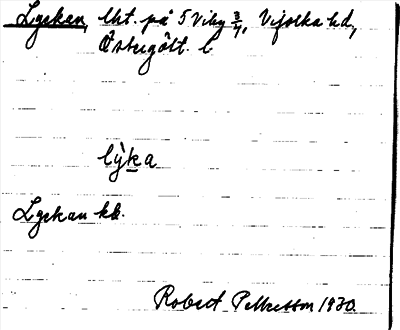 Lyckan, lht. på S Viby 3/4, Vifolka hd,
Östergötl. l
lỳka
Lyckan kb.
Robert Pettersson 1930